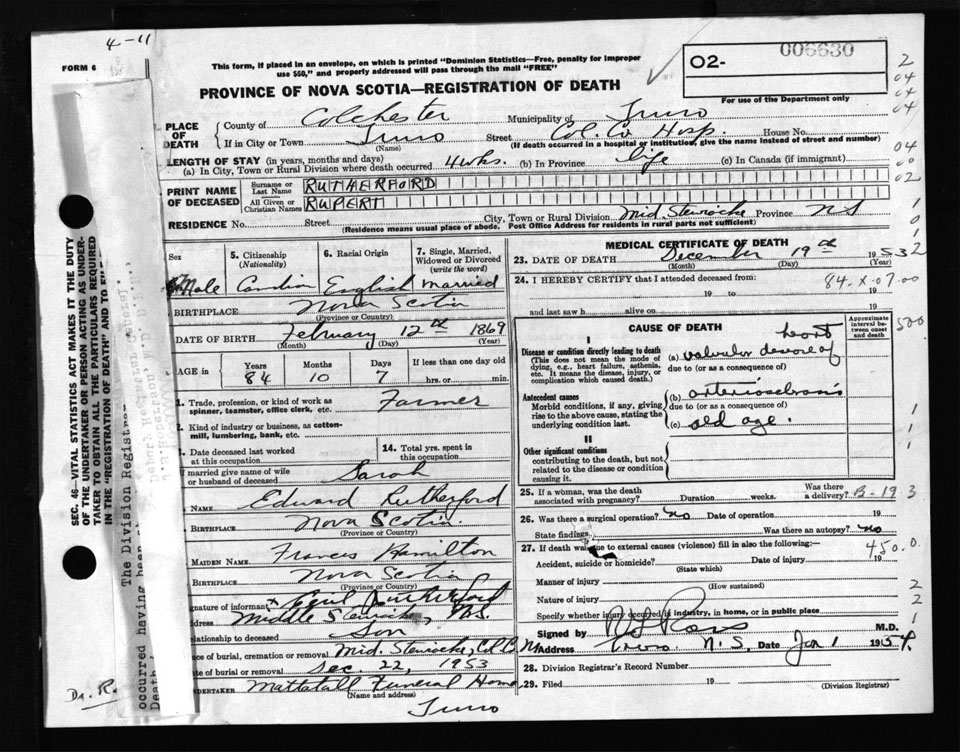 4-11
FORM 6
This form, if placed in an envelope, on which is printed "Dominion Statistics—Free, penalty for improper
use $50," and properly addressed will pass through the mail "FREE"
PROVINCE OF NOVA SCOTIA—REGISTRATION OF DEATH
02-
006630
For use of the Department only
2
04
04
04
PLACE OF DEATH
County of Colchester Municipality of Truro
If in City or Town Truro Street Col. Co. Hosp. House No.
(Name) (If death occurred in a hospital or institution, give the name instead of street and number)
04
00
02
LENGTH OF STAY (in years, months and days)
(a) In City, Town or Rural Division where death occurred 4 wks. (b) In Province life (c) In Canada (if immigrant)
PRINT NAME OF DECEASED
Surname or Last Name RUTHERFORD
All Given or Christian Names RUPERT
RESIDENCE No. Street City, Town or Rural Division Mid. Stewiacke Province N S
(Residence means usual place of abode. Post Office Address for residents in rural parts not sufficient)
1
0
1
2
Sex
Male
5. Citizenship (Nationality)
6. Racial Origin
English
7. Single, Married, Widowed or Divorced (write the word)
married
BIRTHPLACE Nova Scotia
(Province or Country)
DATE OF BIRTH February 12th 1869
(Month) (Day) (Year)
AGE in Years Months Days If less than one day old
84 10 7 hrs. or min.
1. Trade, profession, or kind of work as
spinner, teamster, office clerk, etc. Farmer
2. Kind of industry or business, as cotton-
mill, lumbering, bank, etc.
3. Date deceased last worked
at this occupation
14. Total yrs. spent in
this occupation
If married give name of wife
or husband of deceased Sarah
NAME Edward Rutherford
BIRTHPLACE Nova Scotia.
(Province or Country)
MAIDEN NAME Frances Hamilton
BIRTHPLACE Nova Scotia
(Province or Country)
Signature of informant x Cecil Rutherford
Address Middle Stewiacke, N.S.
Relationship to deceased Son
Place of burial, cremation or removal Mid. Stewiacke, Col. Co
Date of burial or removal Dec. 22, 1953
UNDERTAKER Mattatall Funeral Home
(Name and address)
Truro
MEDICAL CERTIFICATE OF DEATH
23. DATE OF DEATH December 19th 1953
(Month) (Day) (Year)
24. I HEREBY CERTIFY that I attended deceased from:
84-X-07-00
19 to 19
and last saw h alive on 19
CAUSE OF DEATH
Approximate interval between onset and death
500
I
Disease or condition directly leading to death
(This does not mean the mode of
dying, e.g., heart failure, asthenia,
etc. It means the disease, injury, or
complication which caused death.)
heart
(a) valvular disease of
due to (or as a consequence of)
Antecedent causes
Morbid conditions, if any, giving
rise to the above cause, stating the
underlying condition last.
(b) arteriosclerosis
due to (or as a consequence of)
(c) old age.
1
1
II
Other significant conditions
contributing to the death, but not
related to the disease or condition
causing it.
25. If a woman, was the death
associated with pregnancy? Duration weeks. Was there a delivery? B-19 3
26. Was there a surgical operation? no Date of operation 19
State findings Was there an autopsy? no
27. If death was due to external causes (violence) fill in also the following:—
450.0
Accident, suicide or homicide? Date of injury 19
(State which)
Manner of injury
(How sustained)
Nature of injury
Specify whether injury occurred in industry, in home, or in public place
2
2
1
Signed by Ross M.D.
Address Truro N.S. Date Jan 1 1954
28. Division Registrar's Record Number
29. Filed 19
(Division Registrar)
SEC. 46—VITAL STATISTICS ACT MAKES IT THE DUTY
OF THE UNDERTAKER OR PERSON ACTING AS UNDER-
TAKER TO OBTAIN ALL THE PARTICULARS REQUIRED
IN THE "REGISTRATION OF DEATH" AND TO FILE
The Division Registrar
occurred having been
Death
Dr. R.